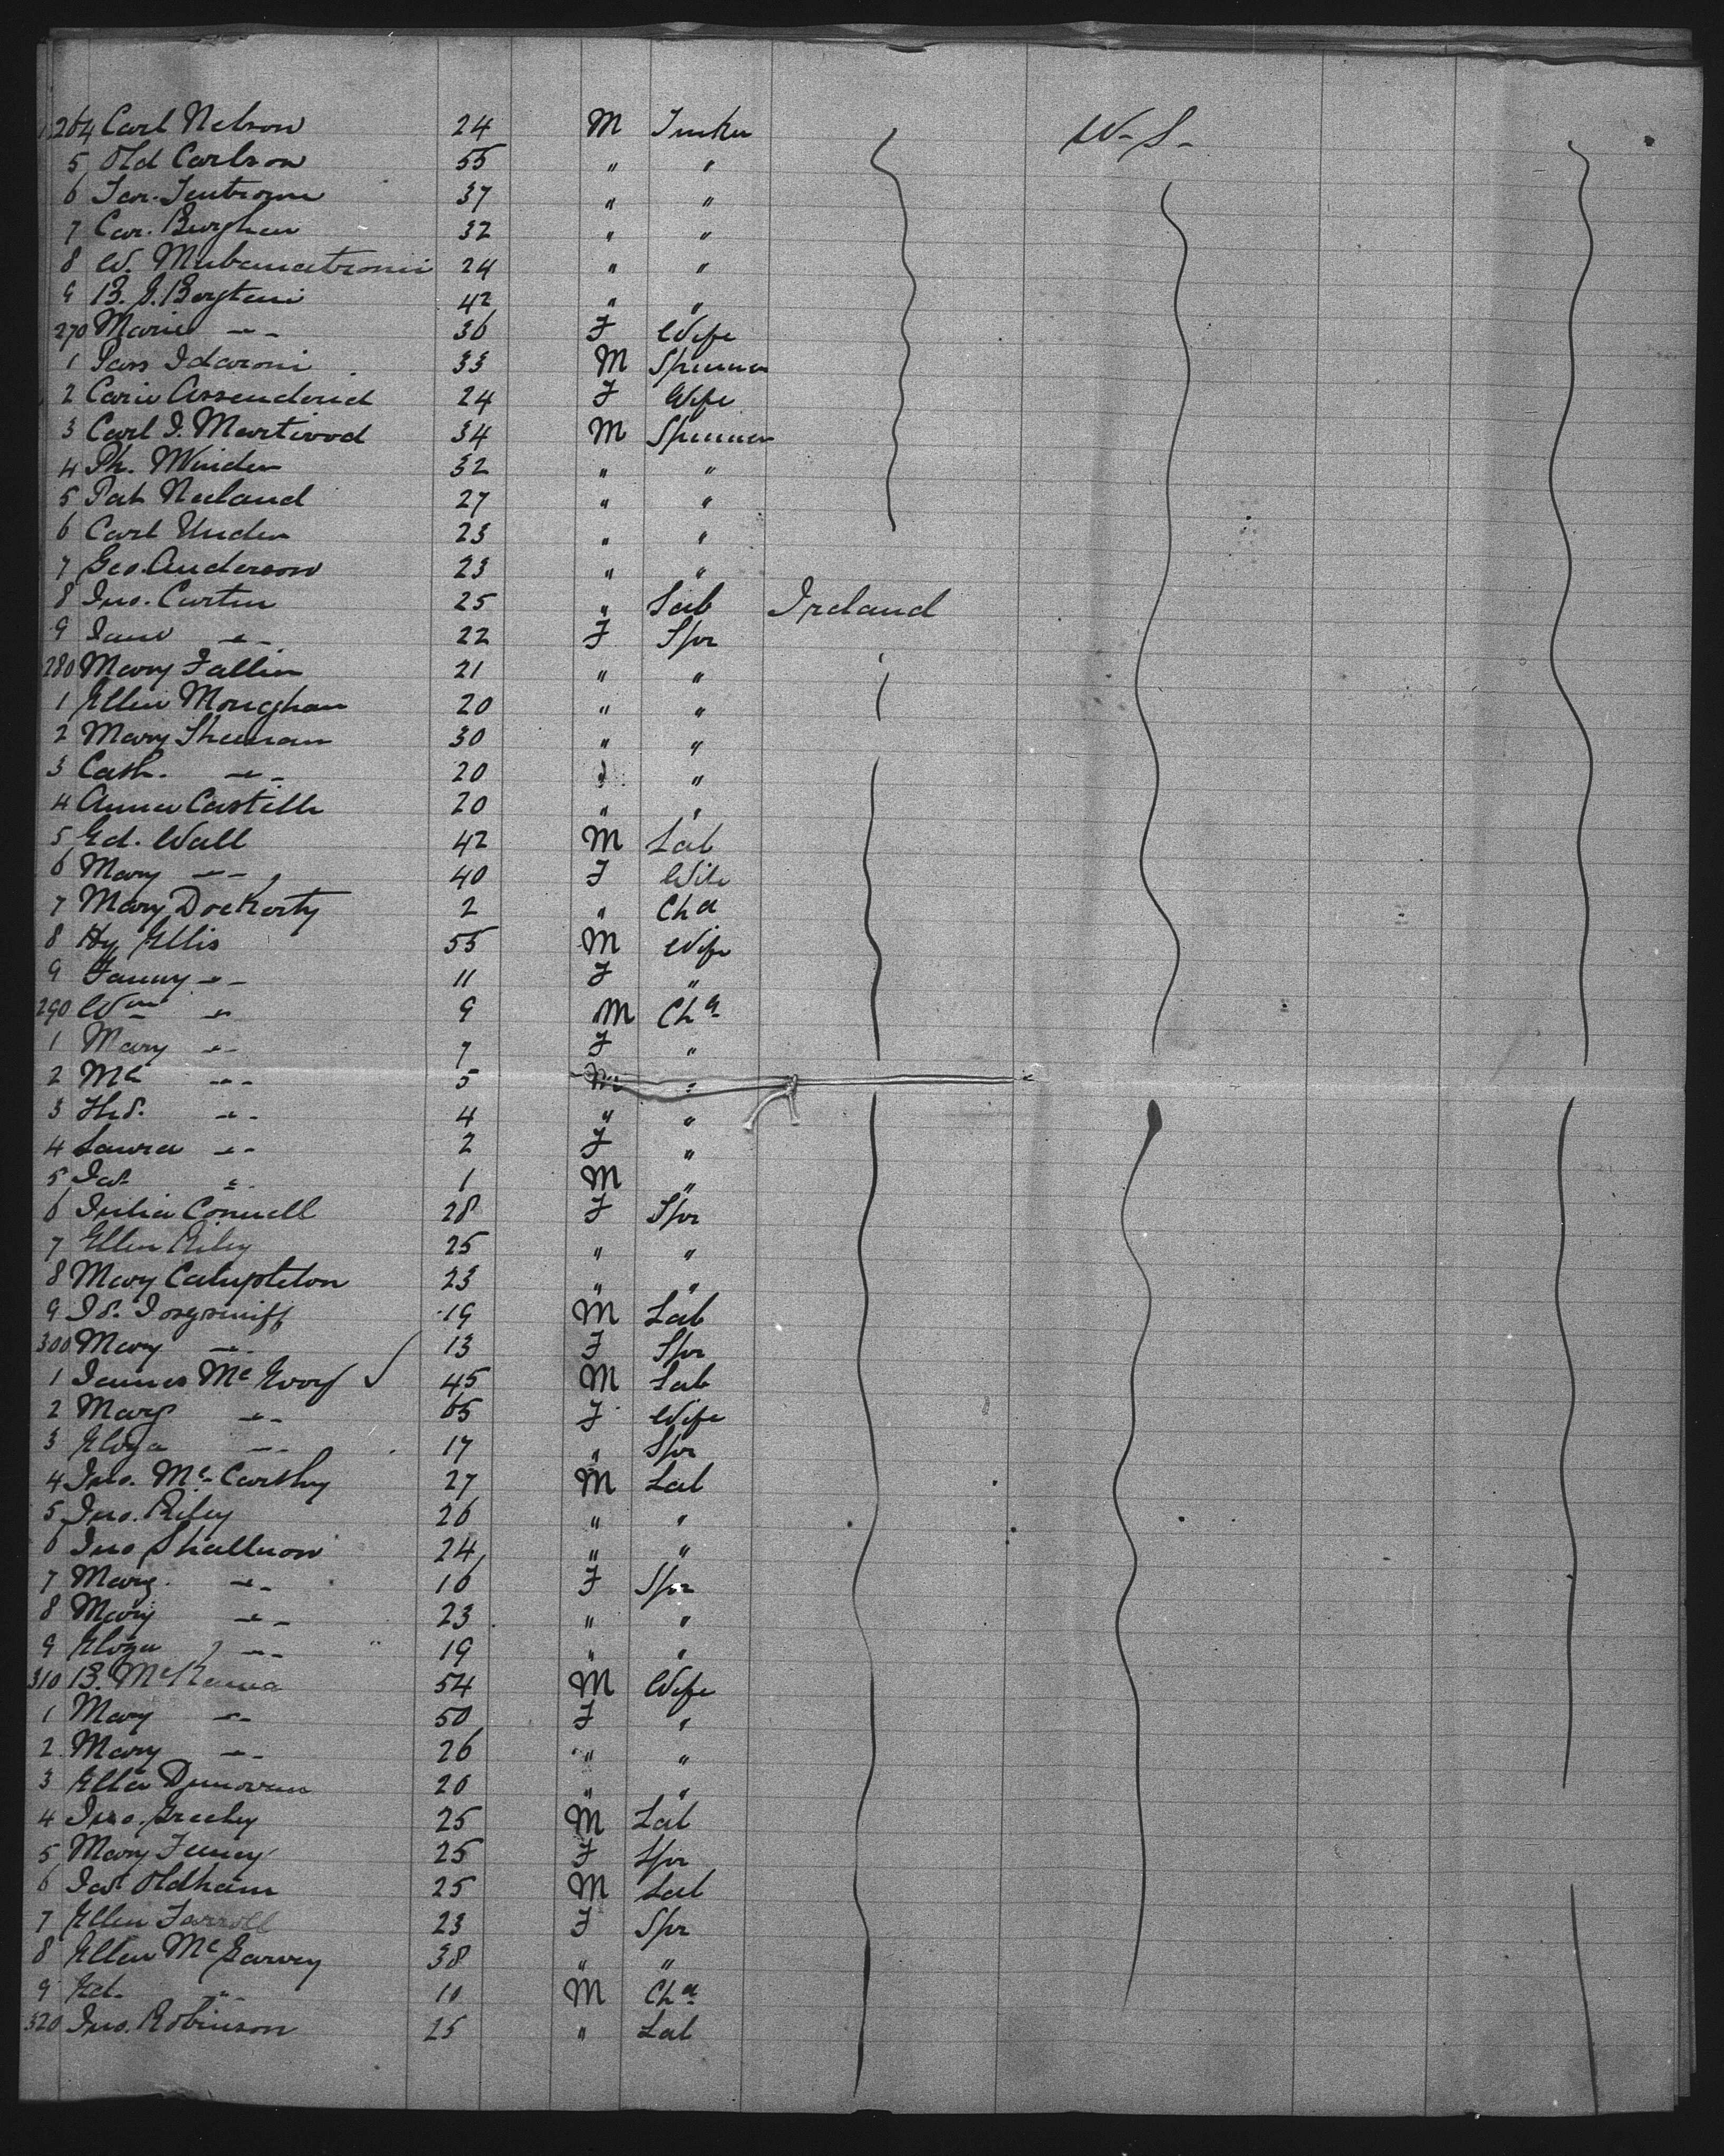 264 Carl Nelson 24 M W-S-
5 Old Carlson 55 " "
6 37 " "
7 Car. Burghen 32 " "
8 W. 24 " "
9 B. J. 42 " "
270 Marie -"- 36 F Wife
1 33 M
2 24 F Wife
3 Carl J. Martwood 34 M
4 Ph. Winden 32 " "
5 Pat Neeland 27 " "
6 Carl Unden 23 " "
7 Geo. Anderson 23 " "
8 Jno. Curtin 25 " Lab Ireland
9 Jane -"- 22 F Spr
280 Mary Fallin 21 " "
1 Ellen Monaghan 20 " "
2 Mary Sheenan 30 " "
3 Cath. -"- 20 " "
4 Anna Castille 20 " "
5 Ed. Wall 42 M Lab
6 Mary -"- 40 F Wife
7 Mary Dockerty 2 " Chd
8 Hy Ellis 55 M Wife
9 Fanny -"- 11 F "
290 Wm -"- 9 M Chd
1 Mary -"- 7 F "
2 Ml -"- 5 M "
3 Thos. -"- 4 " "
4 Laura -"- 2 F "
5 Jas " 1 M "
6 Julia Connell 28 F Spr
7 Ellen Riley 25 " "
8 Mary 23 " "
9 19 M Lab
300 Mary -"- 13 F Spr
1 James McEvoy ✓ 45 M Lab
2 Marg -"- 65 F Wife
3 Eliza -"- 17 " Spr
4 Jno. McCarthy 27 M Lab
5 Jno. Riley 26 " "
6 Jno Shallnow 24 " "
7 Marg. -"- 16 F Spr
8 Mary -"- 23 " "
9 Eliza -"- 19 " "
310 B. McKenna 54 M Wife
1 Mary -"- 50 F "
2 Mary -"- 26 " "
3 Ellen Dunovan 20 " "
4 Jno. Greeley 25 M Lab
5 Mary Feeney 25 F Spr
6 Jas. Oldham 25 M Lab
7 Ellen Farrell 23 F Spr
8 Ellen McGarvey 38 " "
9 Ed. -"- 10 M Chd
320 Jno. Robinson 25 " Lab